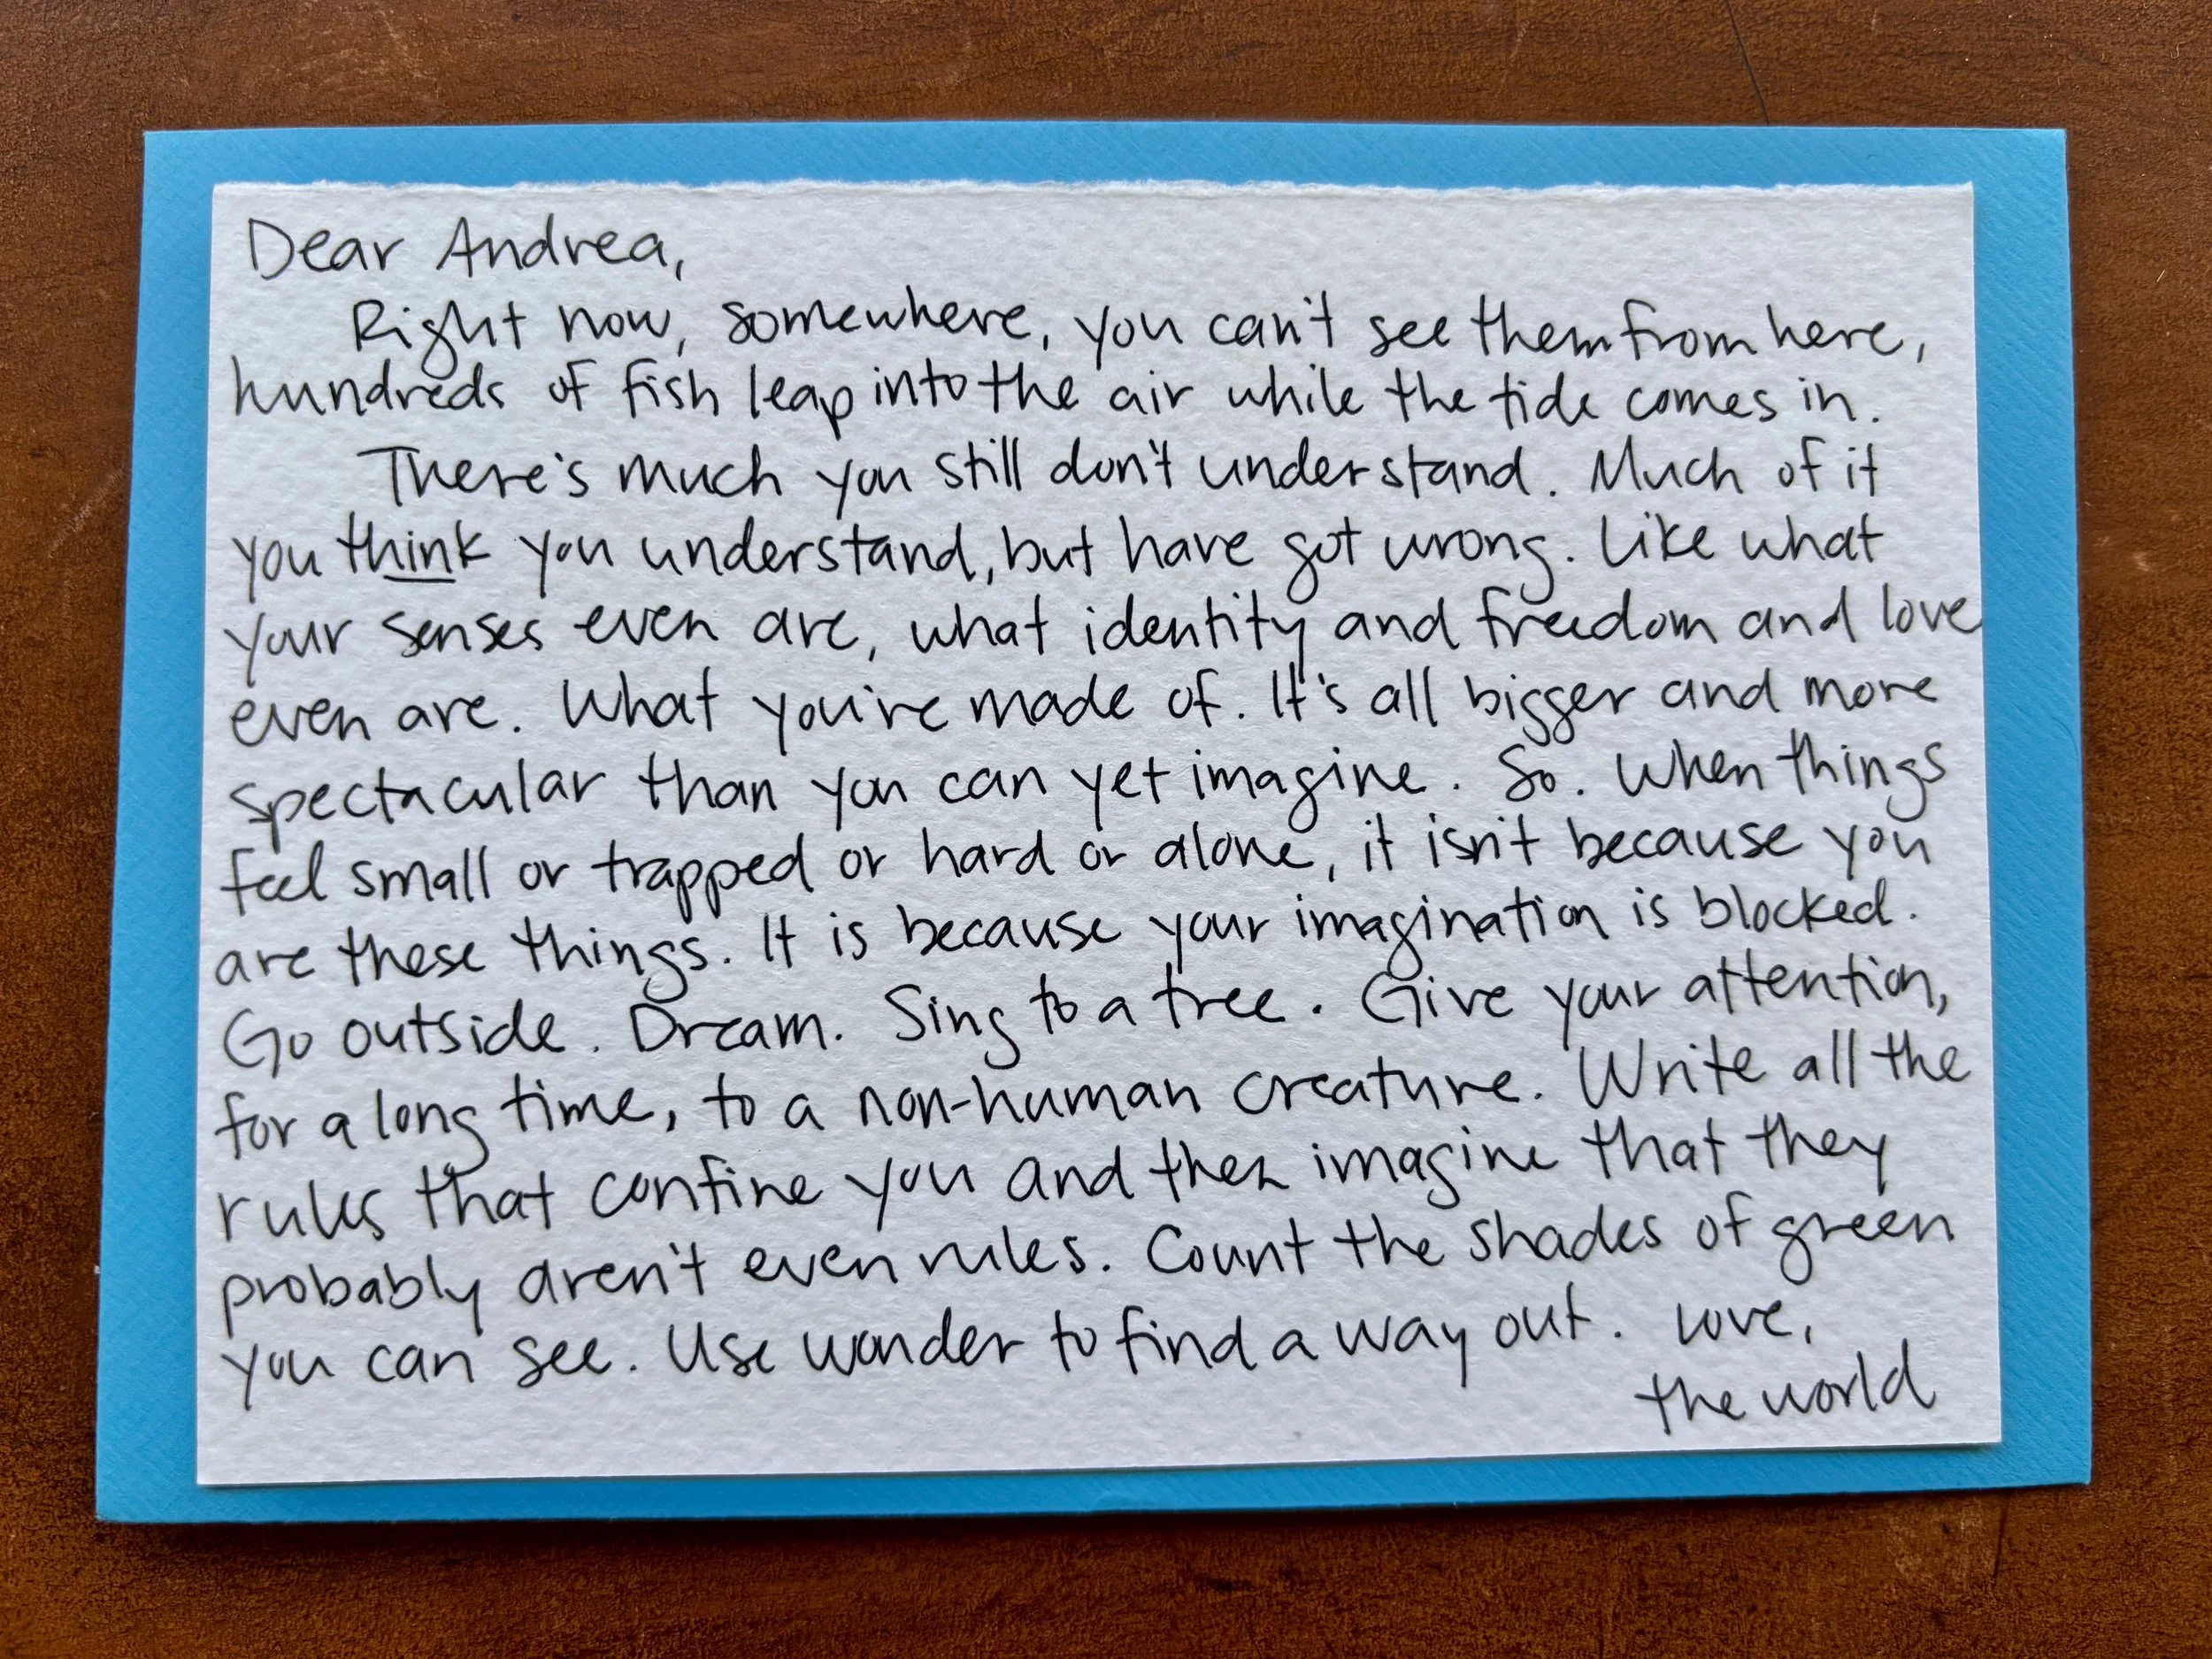 Dear Andrea,
Right now, somewhere, you can't see them from here,
hundreds of fish leap into the air while the tide comes in.
There's much you still don't understand. Much of it
you think you understand, but have got wrong. Like what
your senses even are, what identity and freedom and love
even are. What you're made of. It's all bigger and more
spectacular than you can yet imagine. So. When things
feel small or trapped or hard or alone, it isn't because you
are these things. It is because your imagination is blocked.
Go outside. Dream. Sing to a tree. Give your attention,
for a long time, to a non-human creature. Write all the
rules that confine you and then imagine that they
probably aren't even rules. Count the shades of green
you can see. Use wonder to find a way out. Love,
the world